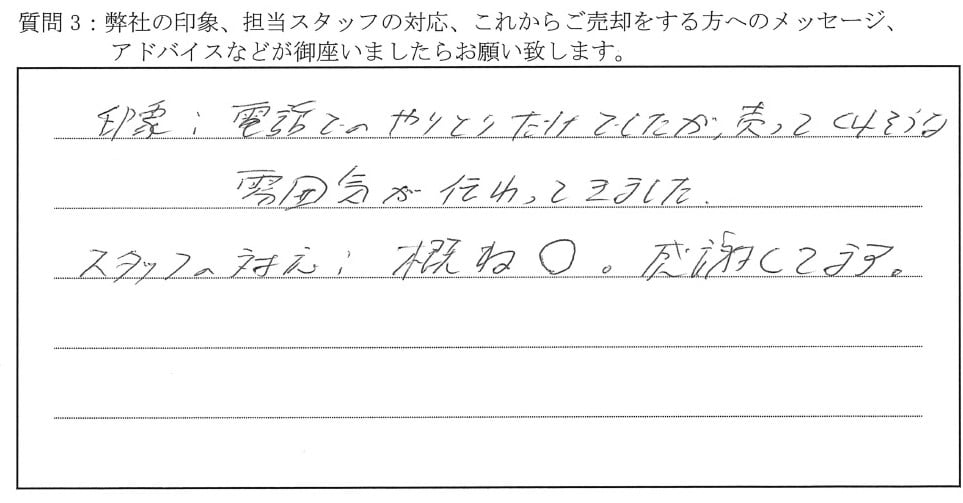 質問3：弊社の印象、担当スタッフの対応、これからご売却をする方へのメッセージ、
アドバイスなどが御座いましたらお願い致します。
印象；電話でのやりとりだけでしたが、売ってくれそうな
雰囲気が伝わってきました。
スタッフの対応；概ね○。感謝してます。